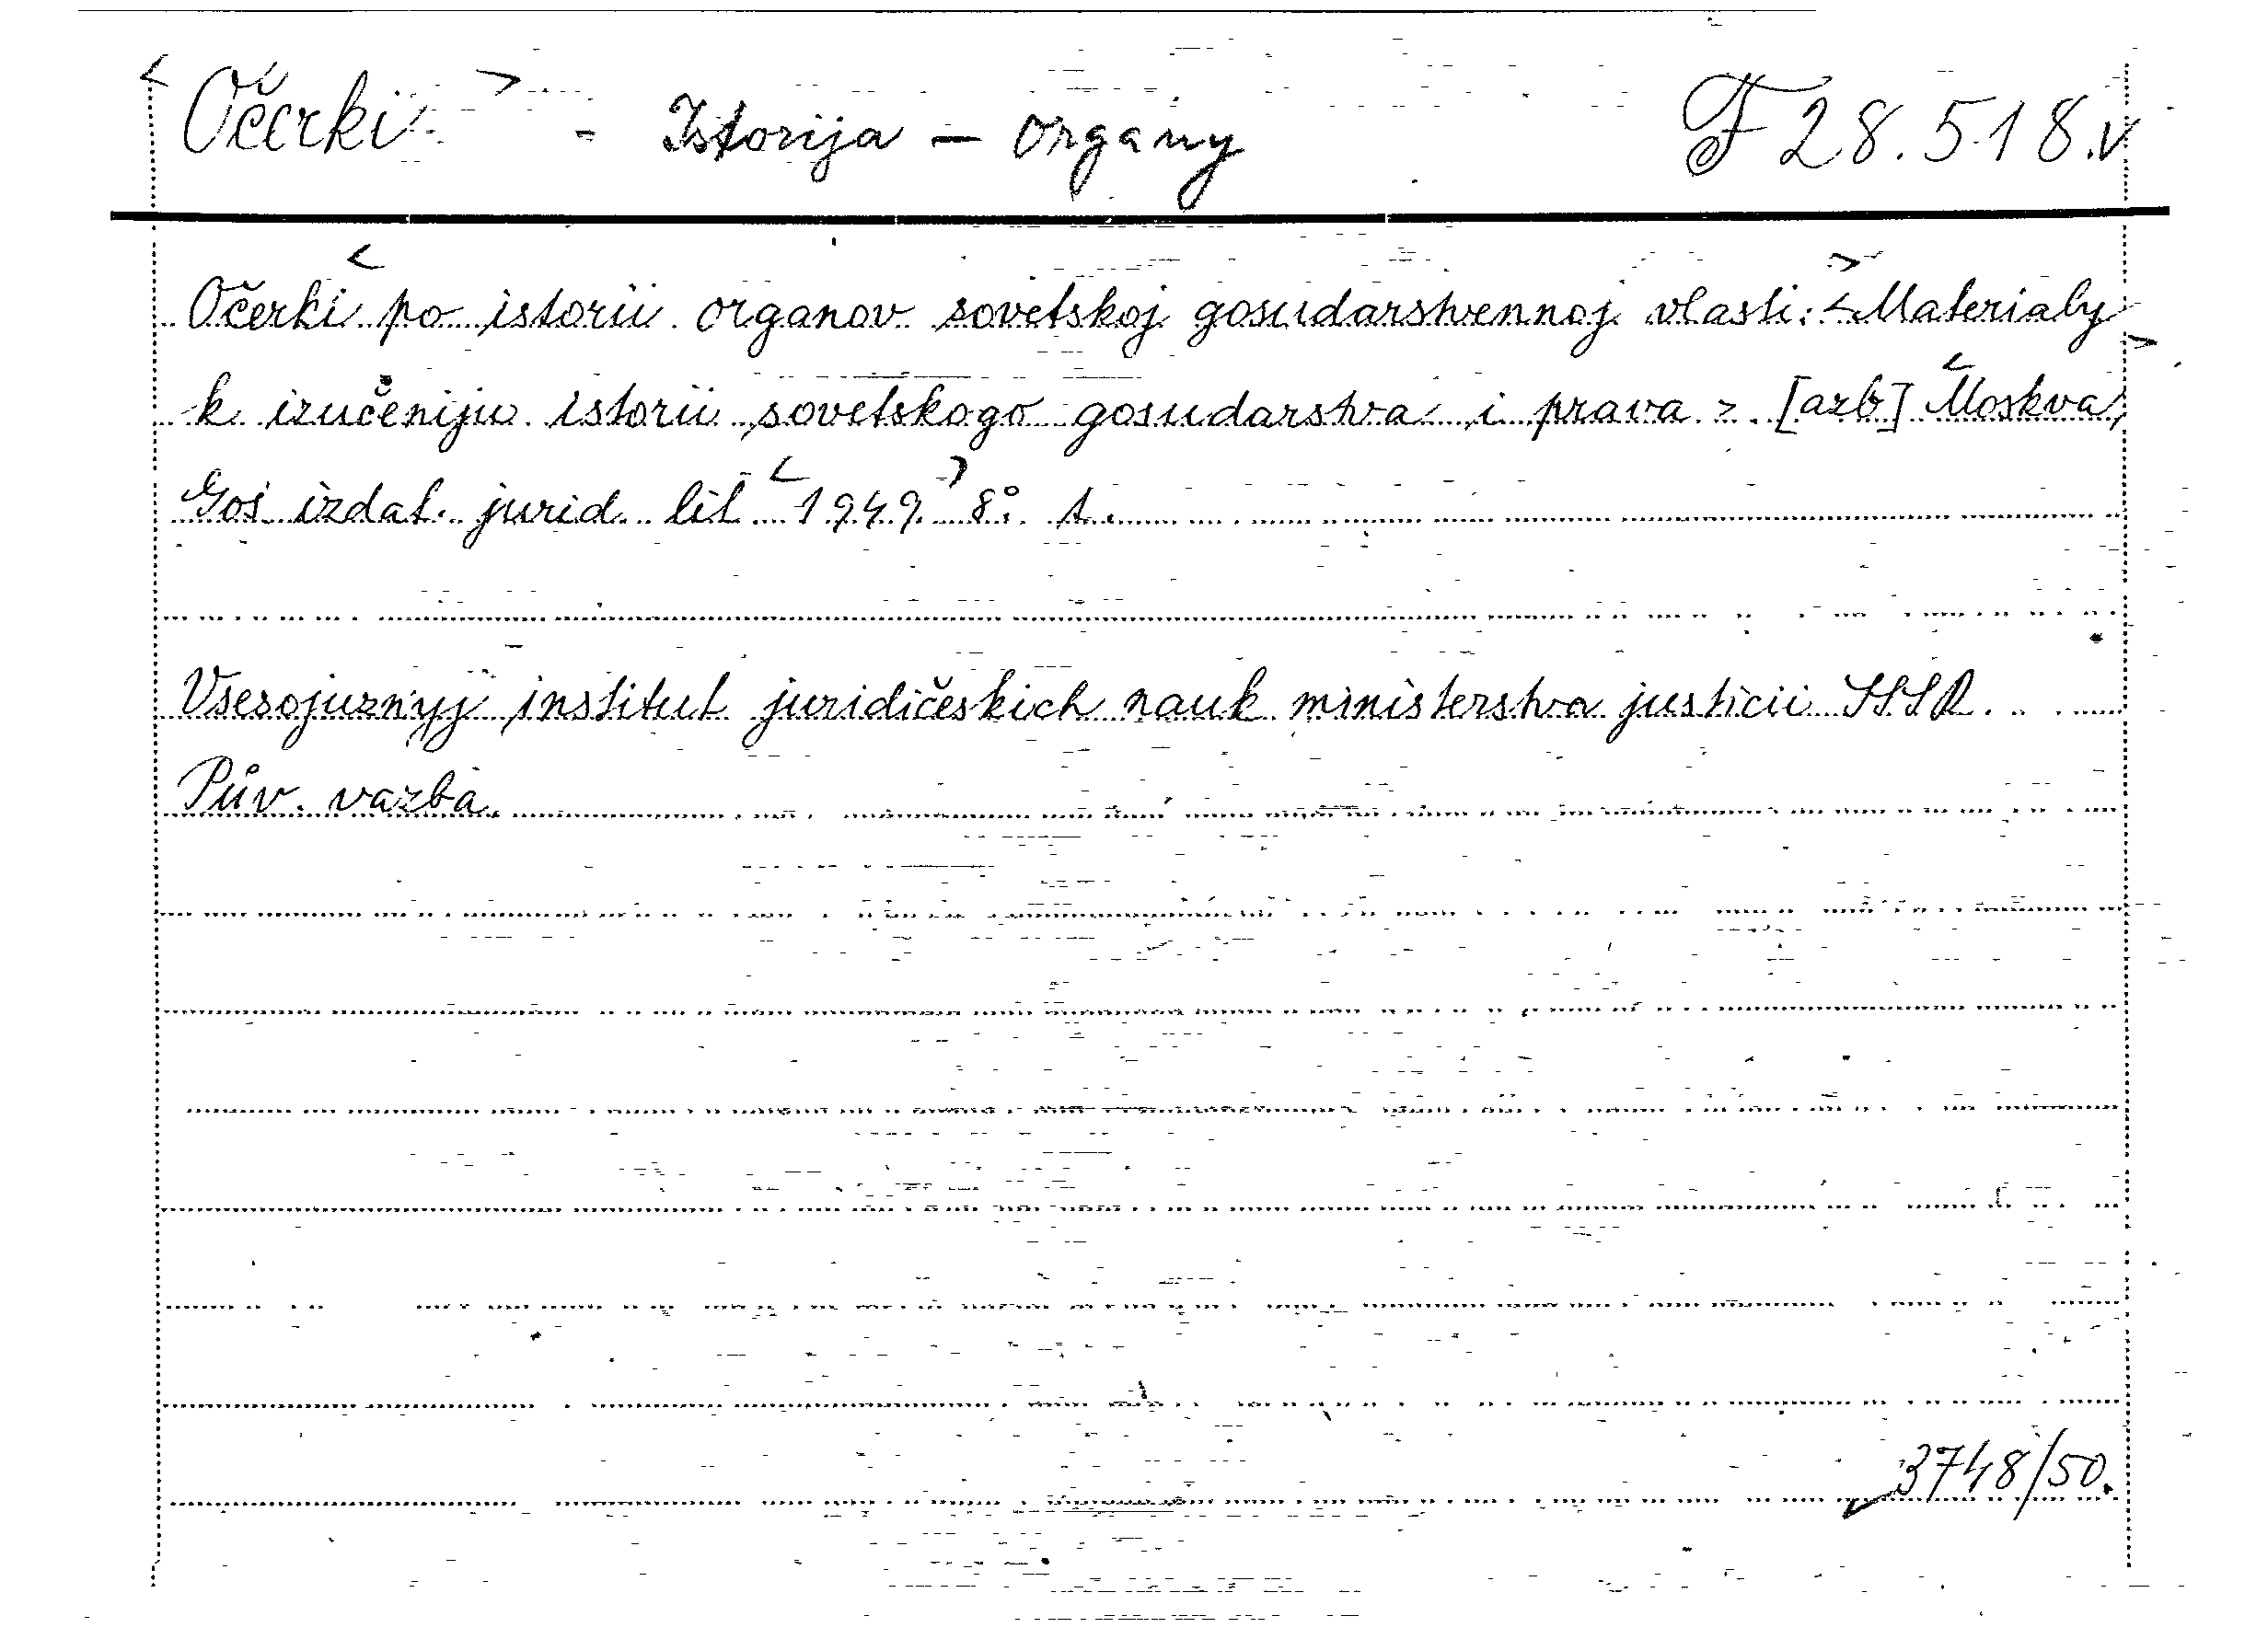 <Očerki> - Istorija - organy F 28.518.v
Očerki <po istorii organov sovetskoj gosudarstvennoj vlasti.> <Materialy
k izučeniju istorii sovetskogo gosudarstva i prava.> [azb] <Moskva,
Gos izdat. jurid. lit <1949> 8° 1.
Vsesojuznyj institut juridičeskich nauk ministerstva justicii SSSR.
Pův. vazba.
3748/50.